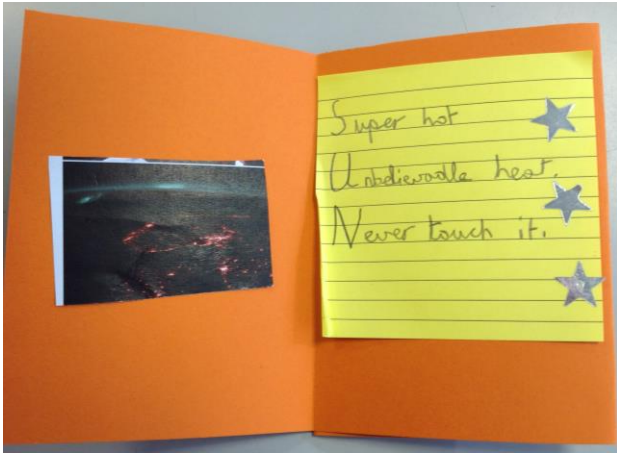 Super hot
Unbdievadle heat.
Never touch it.